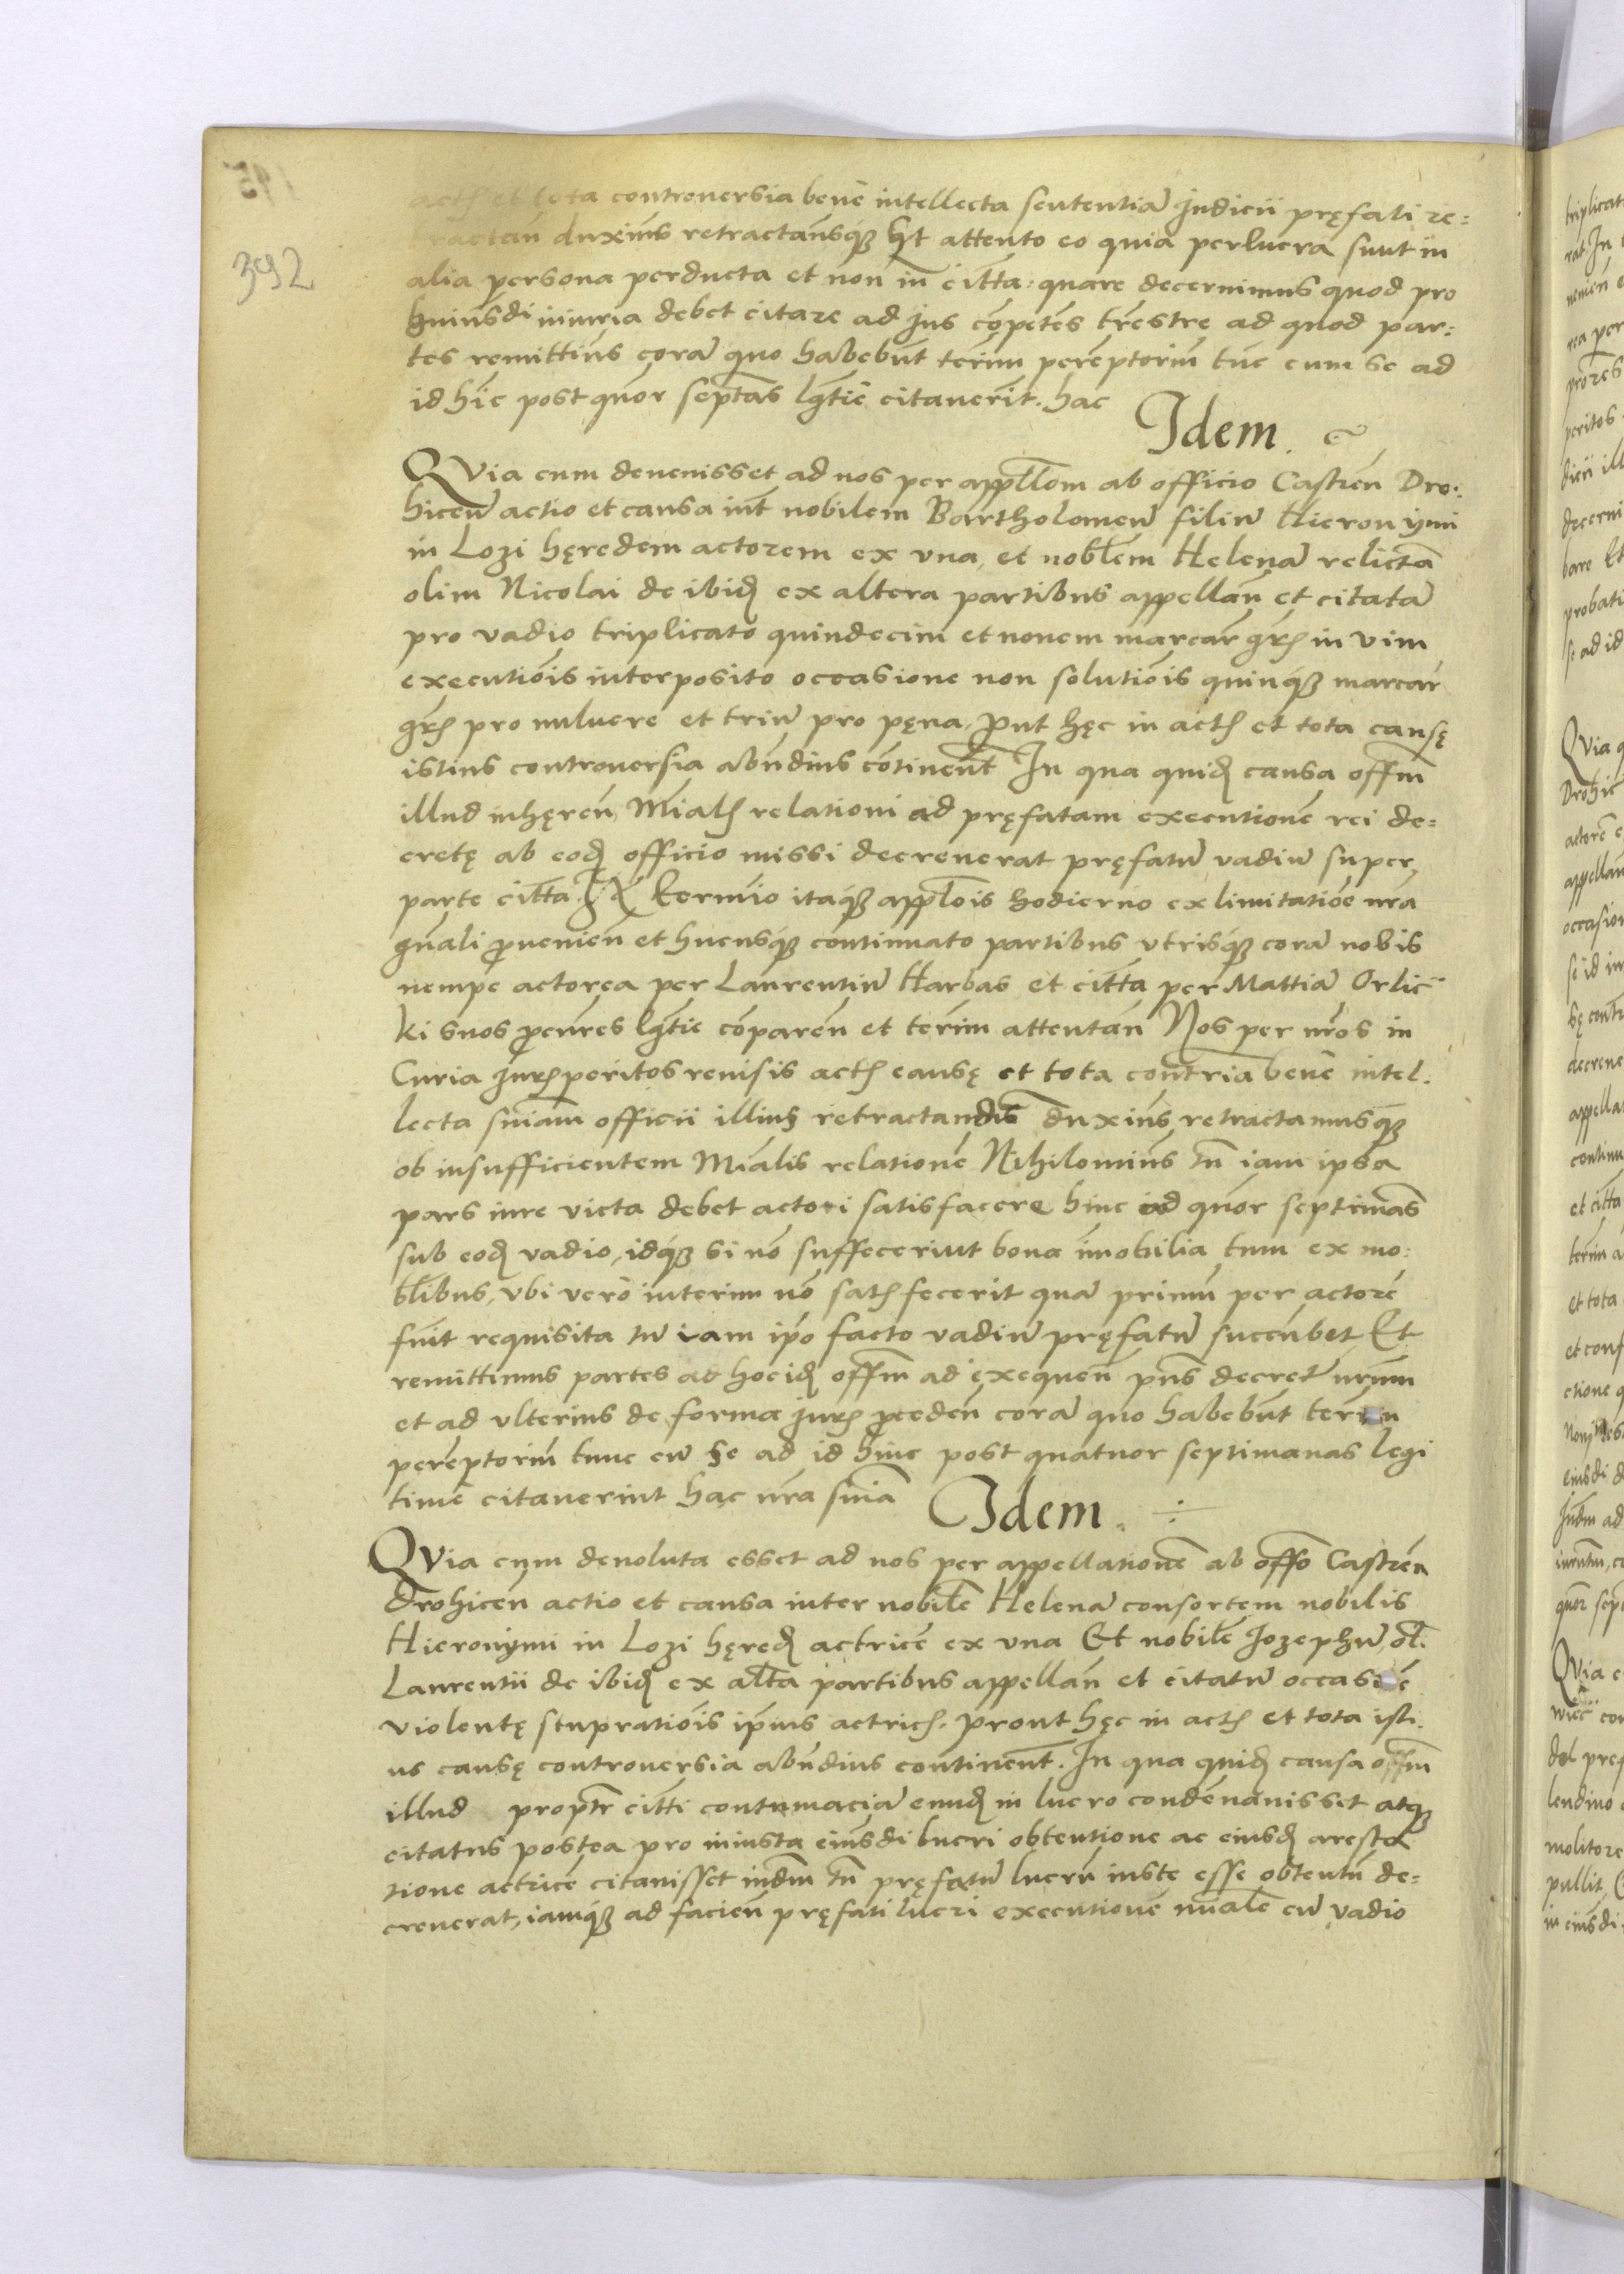 392
actis et tota controuersia bene intellecta sententiã Judicii pręfati re=
tractań duximꝰ retractamusqꝫ Et attento eo quia perlucra sunt in
alia persona perducta et non in citta: quare decernimus quod pro
huiusdi iniuria debet citare ad Jus cõpetẽs trẽstre ad quod par=
tes remittimꝰ corã quo habebũt termin perẽptoriũ tũc cum se ad
id hic post quõr septãs lg̃tie citauerĩt. hac
Idem.
QVia cum deuenisset ad nos per appllom ab officio Castrẽn Dro:
hiceñ actio et causa int̃ nobilem Bartholomeũ filiũ Hieronymi
in Lozi hęredem actorem ex vna, et nobl̃em Helenã relictã
olim Nicolai de ibid̃ ex altera partibus appellań et citatã
pro vadio triplicato quindecim et nouem marcar̃ gr̃s in vim
executiõis interposito occasione non solutiõis quinqꝫ marcar̃
gr̃s pro vulnere et triũ pro pęna, put hęc in actis et tota causę
istius controuersia abũdius cõtinent̃ In qua quid̃ causa offm̃
illud inhęreñ Mĩalis relationi ad pręfatam executionẽ rei de=
cretę ab eod̃ officio missi decreuerat pręfatũ vadiũ super
parte citta. In termino itaqꝫ appl̃ois hodierno ex limitatiõe nr̃a
gñali ꝓuenieñ et hucusqꝫ continuato partibus vtrisqꝫ corã nobis
nempe actorea per Laurentiũ Harbas et citta per Mattiã Orlic
ki suos ꝓcures lg̃tie cõpareñ et termin attentań Nos per nr̃os in
Curia Jurisperitos reuisis actis causę et tota contr̃ria bene intel.
lecta sniam officii illius retractandã duximꝰ retractamusqꝫ
ob insufficientem Mĩalis relationẽ Nihilominꝰ tñ iam ipsa
pars iure victa debet actori satisfacere hinc ad quõr septimãs
sub eod̃ vadio, idqꝫ si nõ suffecerint bona ĩmobilia tum ex mo:
bl̃ibus, vbi verò interim nõ satisfecerit quã primũ per actorẽ
fuit requisita tũ iam ip̃o facto vadiũ pręfatũ succũbet Et
remittimus partes ad hoc id̃ offm̃ ad exequeñ pñs decretũ nr̃um
et ad vlterius de forma Juris ꝓcedeñ corã quo habebũt termin
perẽptoriũ tunc cũ se ad id hinc post quatuor septimanas legi
time citauerint hac nr̃a snĩa
Idem. ÷
QVia cum deuoluta esset ad nos per appellationẽ ab offo Castrẽn
Drohiceñ actio et causa inter nobil̃e Helenã consortem nobilis
Hieronymi in Lozi hęred̃ actricẽ ex vna Et nobil̃e Jozephũ ol̃.
Laurentii de ibid̃ ex al̃ta partibus appellań et citatũ occasiõe
violentę stupratiõis ip̃ius actricis. prout hęc in actis et tota isti.
us causę controuersia abũdius continent̃. In qua quid̃ causa offm̃
illud propt̃r citti contumaciã eund̃ in lucro condẽnauisset atqꝫ
citatus postea pro iniusta eiusdi lucri obtentione ac eiusd̃ aresta
tione actricẽ citauisset indm̃ tñ pręfatũ lucrũ iuste esse obtentũ de=
creuerat, iamqꝫ ad facieñ pręfati lucri executionẽ mĩalẽ cũ vadio